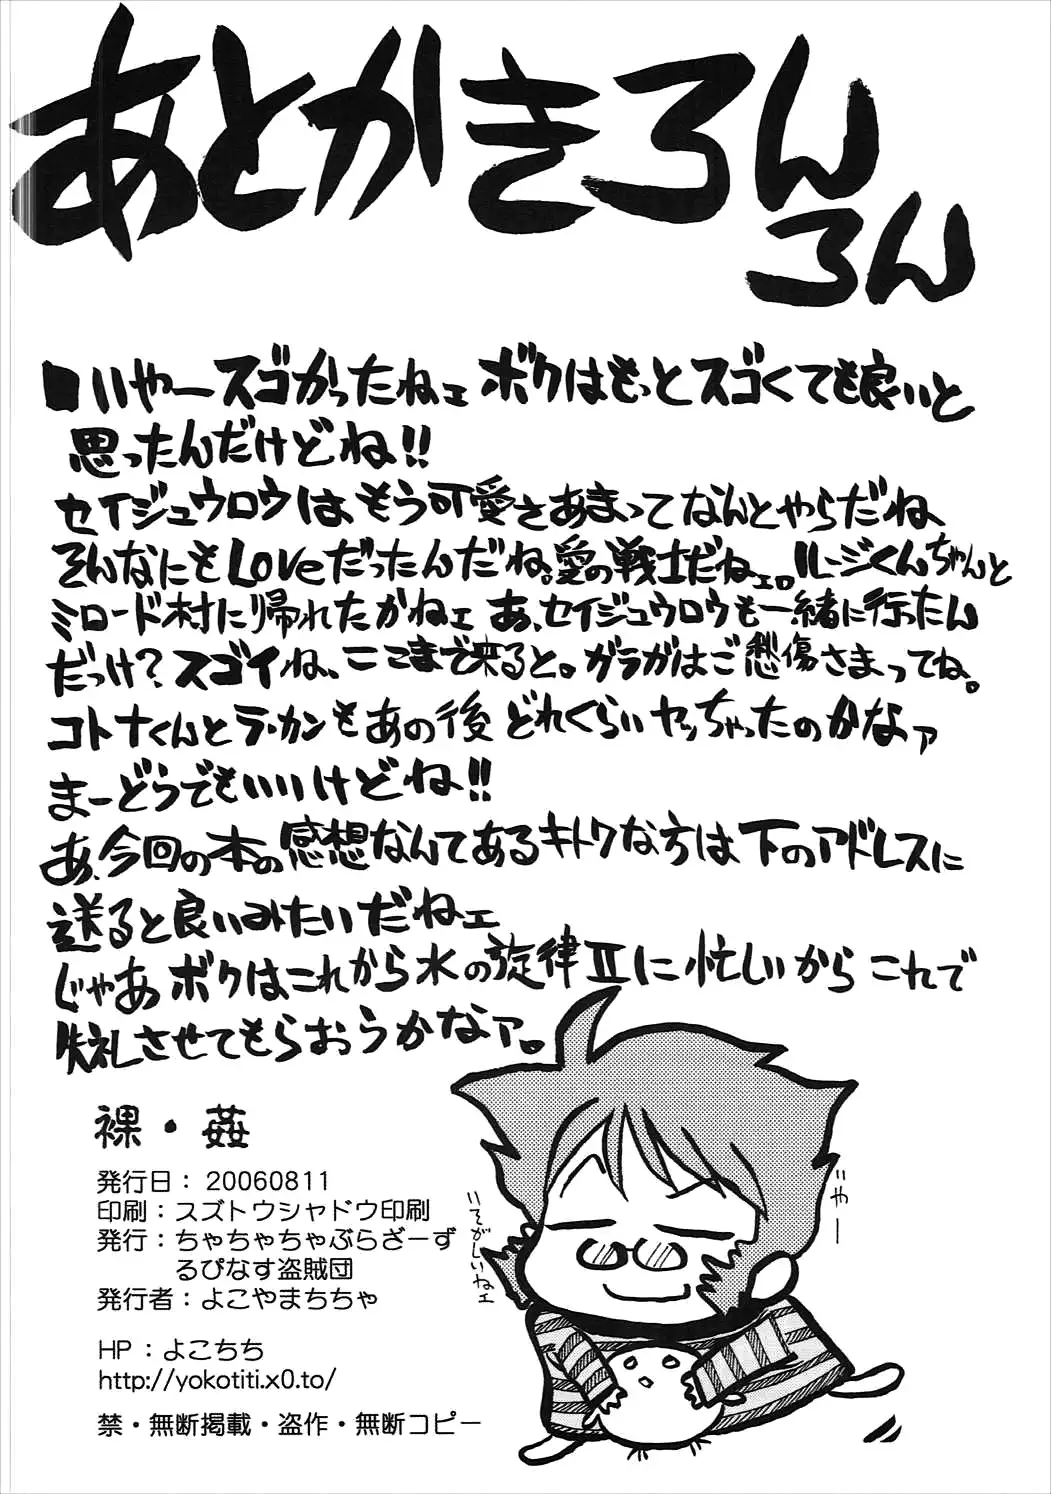 あとかきろん
ろん
■いやースゴかったねェ ボクはもっとスゴくても良いと
思ったんだけどね!!
セイジュウロウは、もう可愛さあまってなんとやらだね、
そんなにもLoveだったんだね。愛の戦士だねェ。ルージくんちゃんと
ミロード村に帰れたかねェ あ、セイジュウロウも一緒に行ったん
だっけ?スゴイね、ここまで来ると。ガラガはご愁傷さまってね。
コトナくんとラ・カンもあの後どれくらいヤッちゃったのかなァ
まーどうでもいいけどね!!
あ、今回の本の感想なんてあるキトクな方は下のアドレスに
送ると良いみたいだねェ
じゃあボクはこれから水の旋律Ⅱに忙しいからこれで
失礼させてもらおうかなァ。
いやー
いそがしいねェ
裸・姦
発行日:20060811
印刷:スズトウシャドウ印刷
発行:ちゃちゃちゃぶらざーず
るぴなす盗賊団
発行者:よこやまちちゃ
HP:よこちち
http://yokotiti.x0.to/
禁・無断掲載・盗作・無断コピー